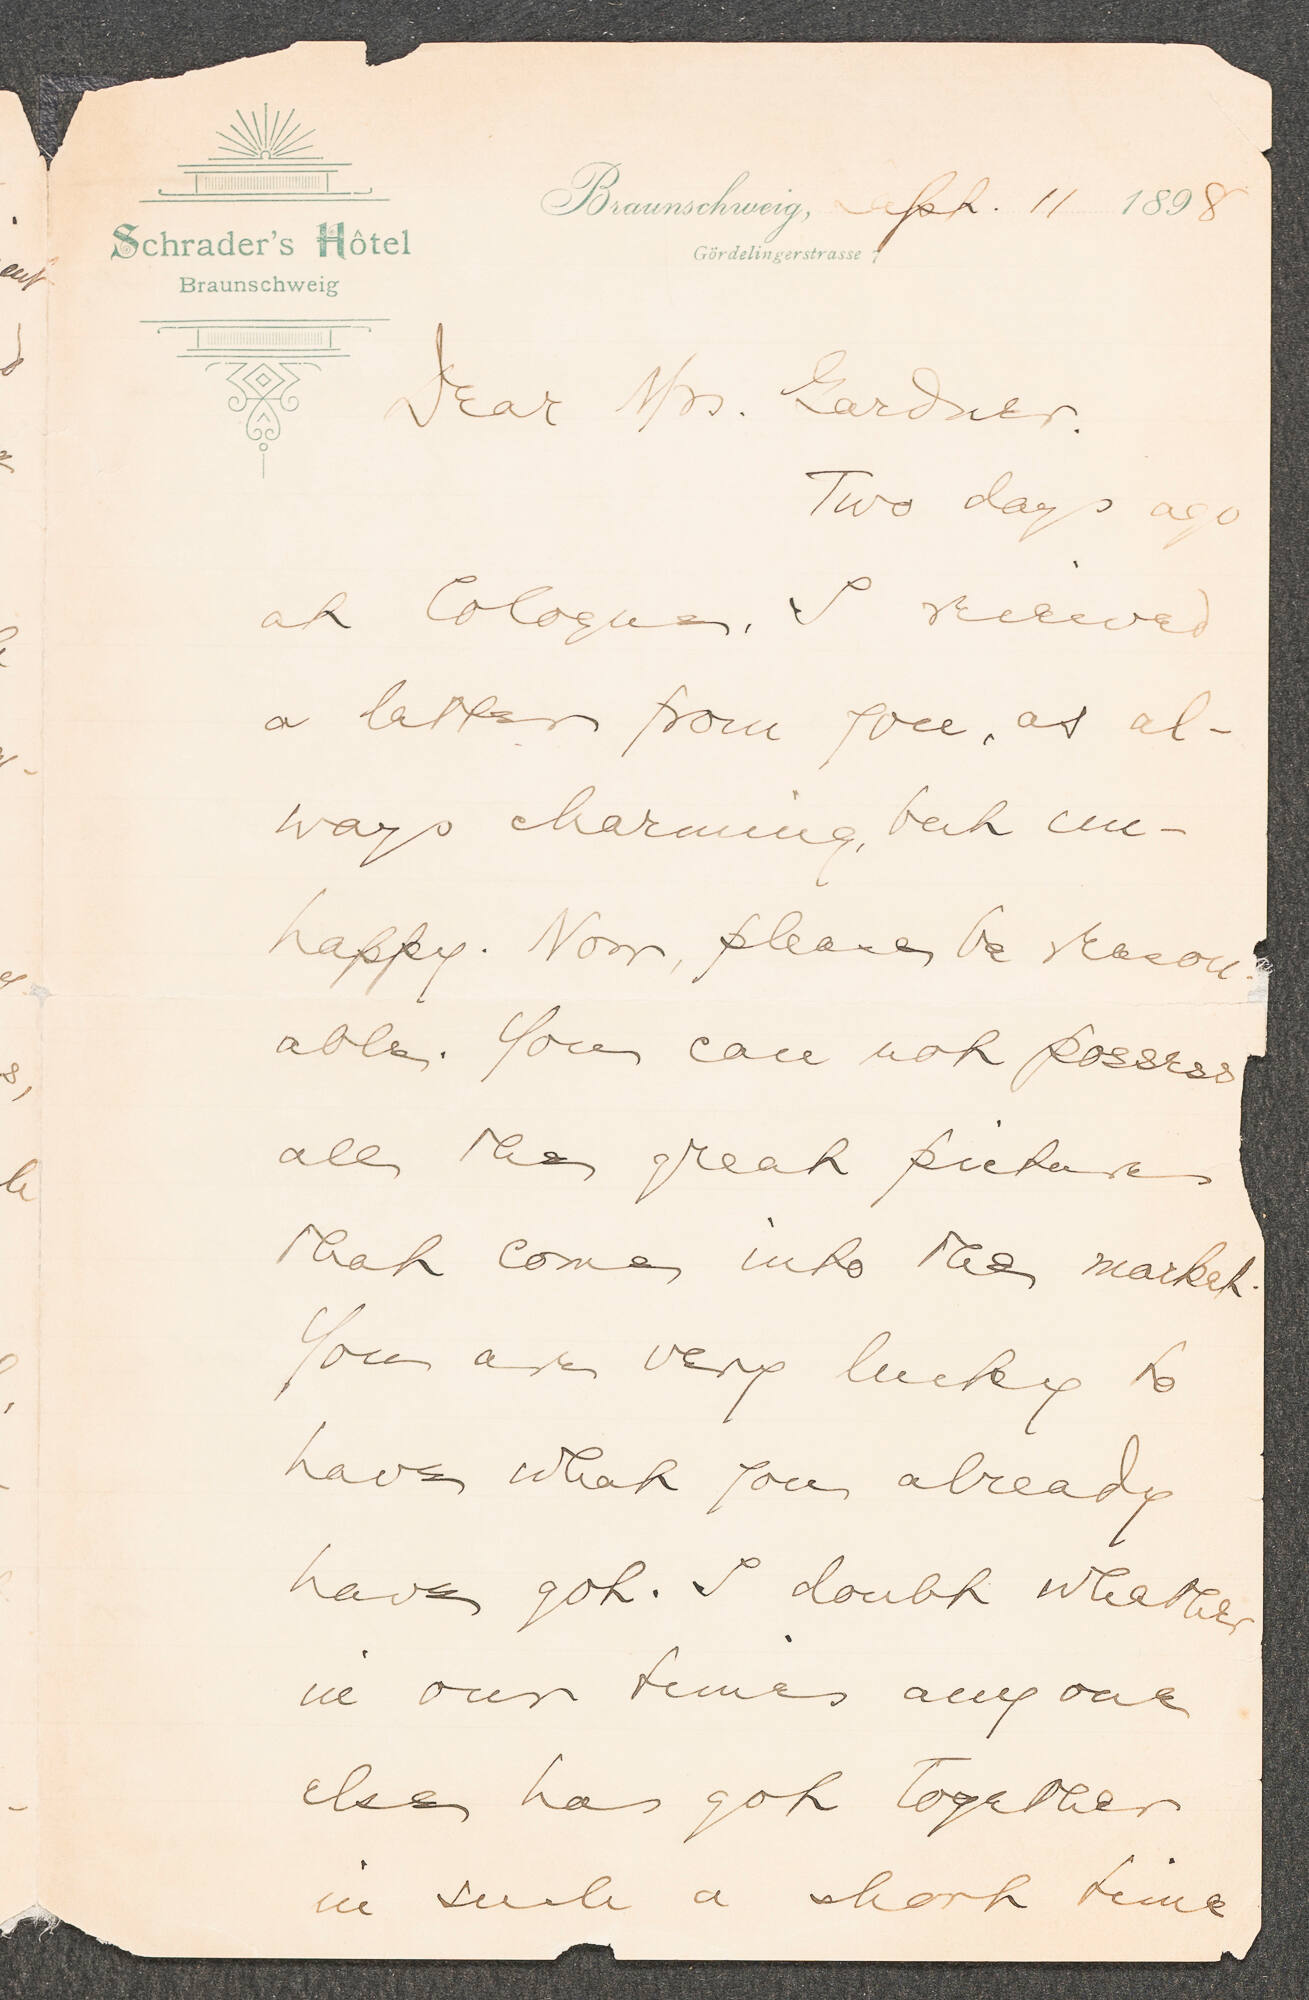 Schrader's Hôtel
Braunschweig
Braunschweig, Sept. 11 1898
Gördelingerstrasse 7
Dear Mrs. Gardner.
Two days ago
at Cologne, I received
a letter from you, as al-
ways charming, but un-
happy. Now, please be reason-
able. You can not possess
all the great pictures
that come into the market.
You are very lucky to
have what you already
have got. I doubt whether
in our times any one
else has got together
in such a short time